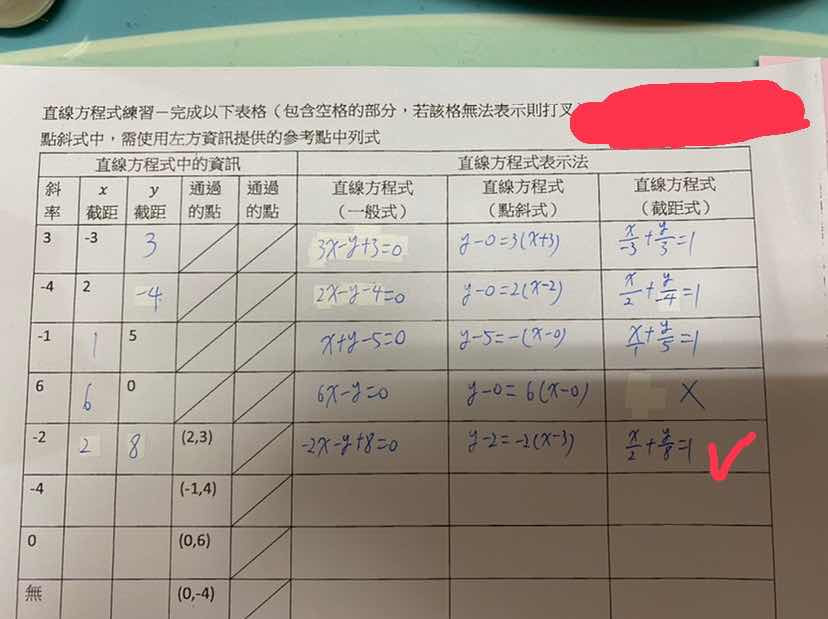 直線方程式練習－完成以下表格（包含空格的部分，若該格無法表示則打叉）
點斜式中，需使用左方資訊提供的參考點中列式
直線方程式中的資訊 直線方程式表示法
斜率 x截距 y截距 通過的點 通過的點 直線方程式（一般式） 直線方程式（點斜式） 直線方程式（截距式）
3 -3 3 3x-y+3=0 y-0=3(x+3) x/-3+y/3=1
-4 2 -4 2x-y-4=0 y-0=2(x-2) x/2+y/-4=1
-1 1 5 x+y-5=0 y-5=-(x-0) x/1+y/5=1
6 6 0 6x-y=0 y-0=6(x-0) X
-2 2 8 (2,3) -2x-y+8=0 y-2=-2(x-3) x/2+y/8=1
-4 (-1,4)
0 (0,6)
無 (0,-4)